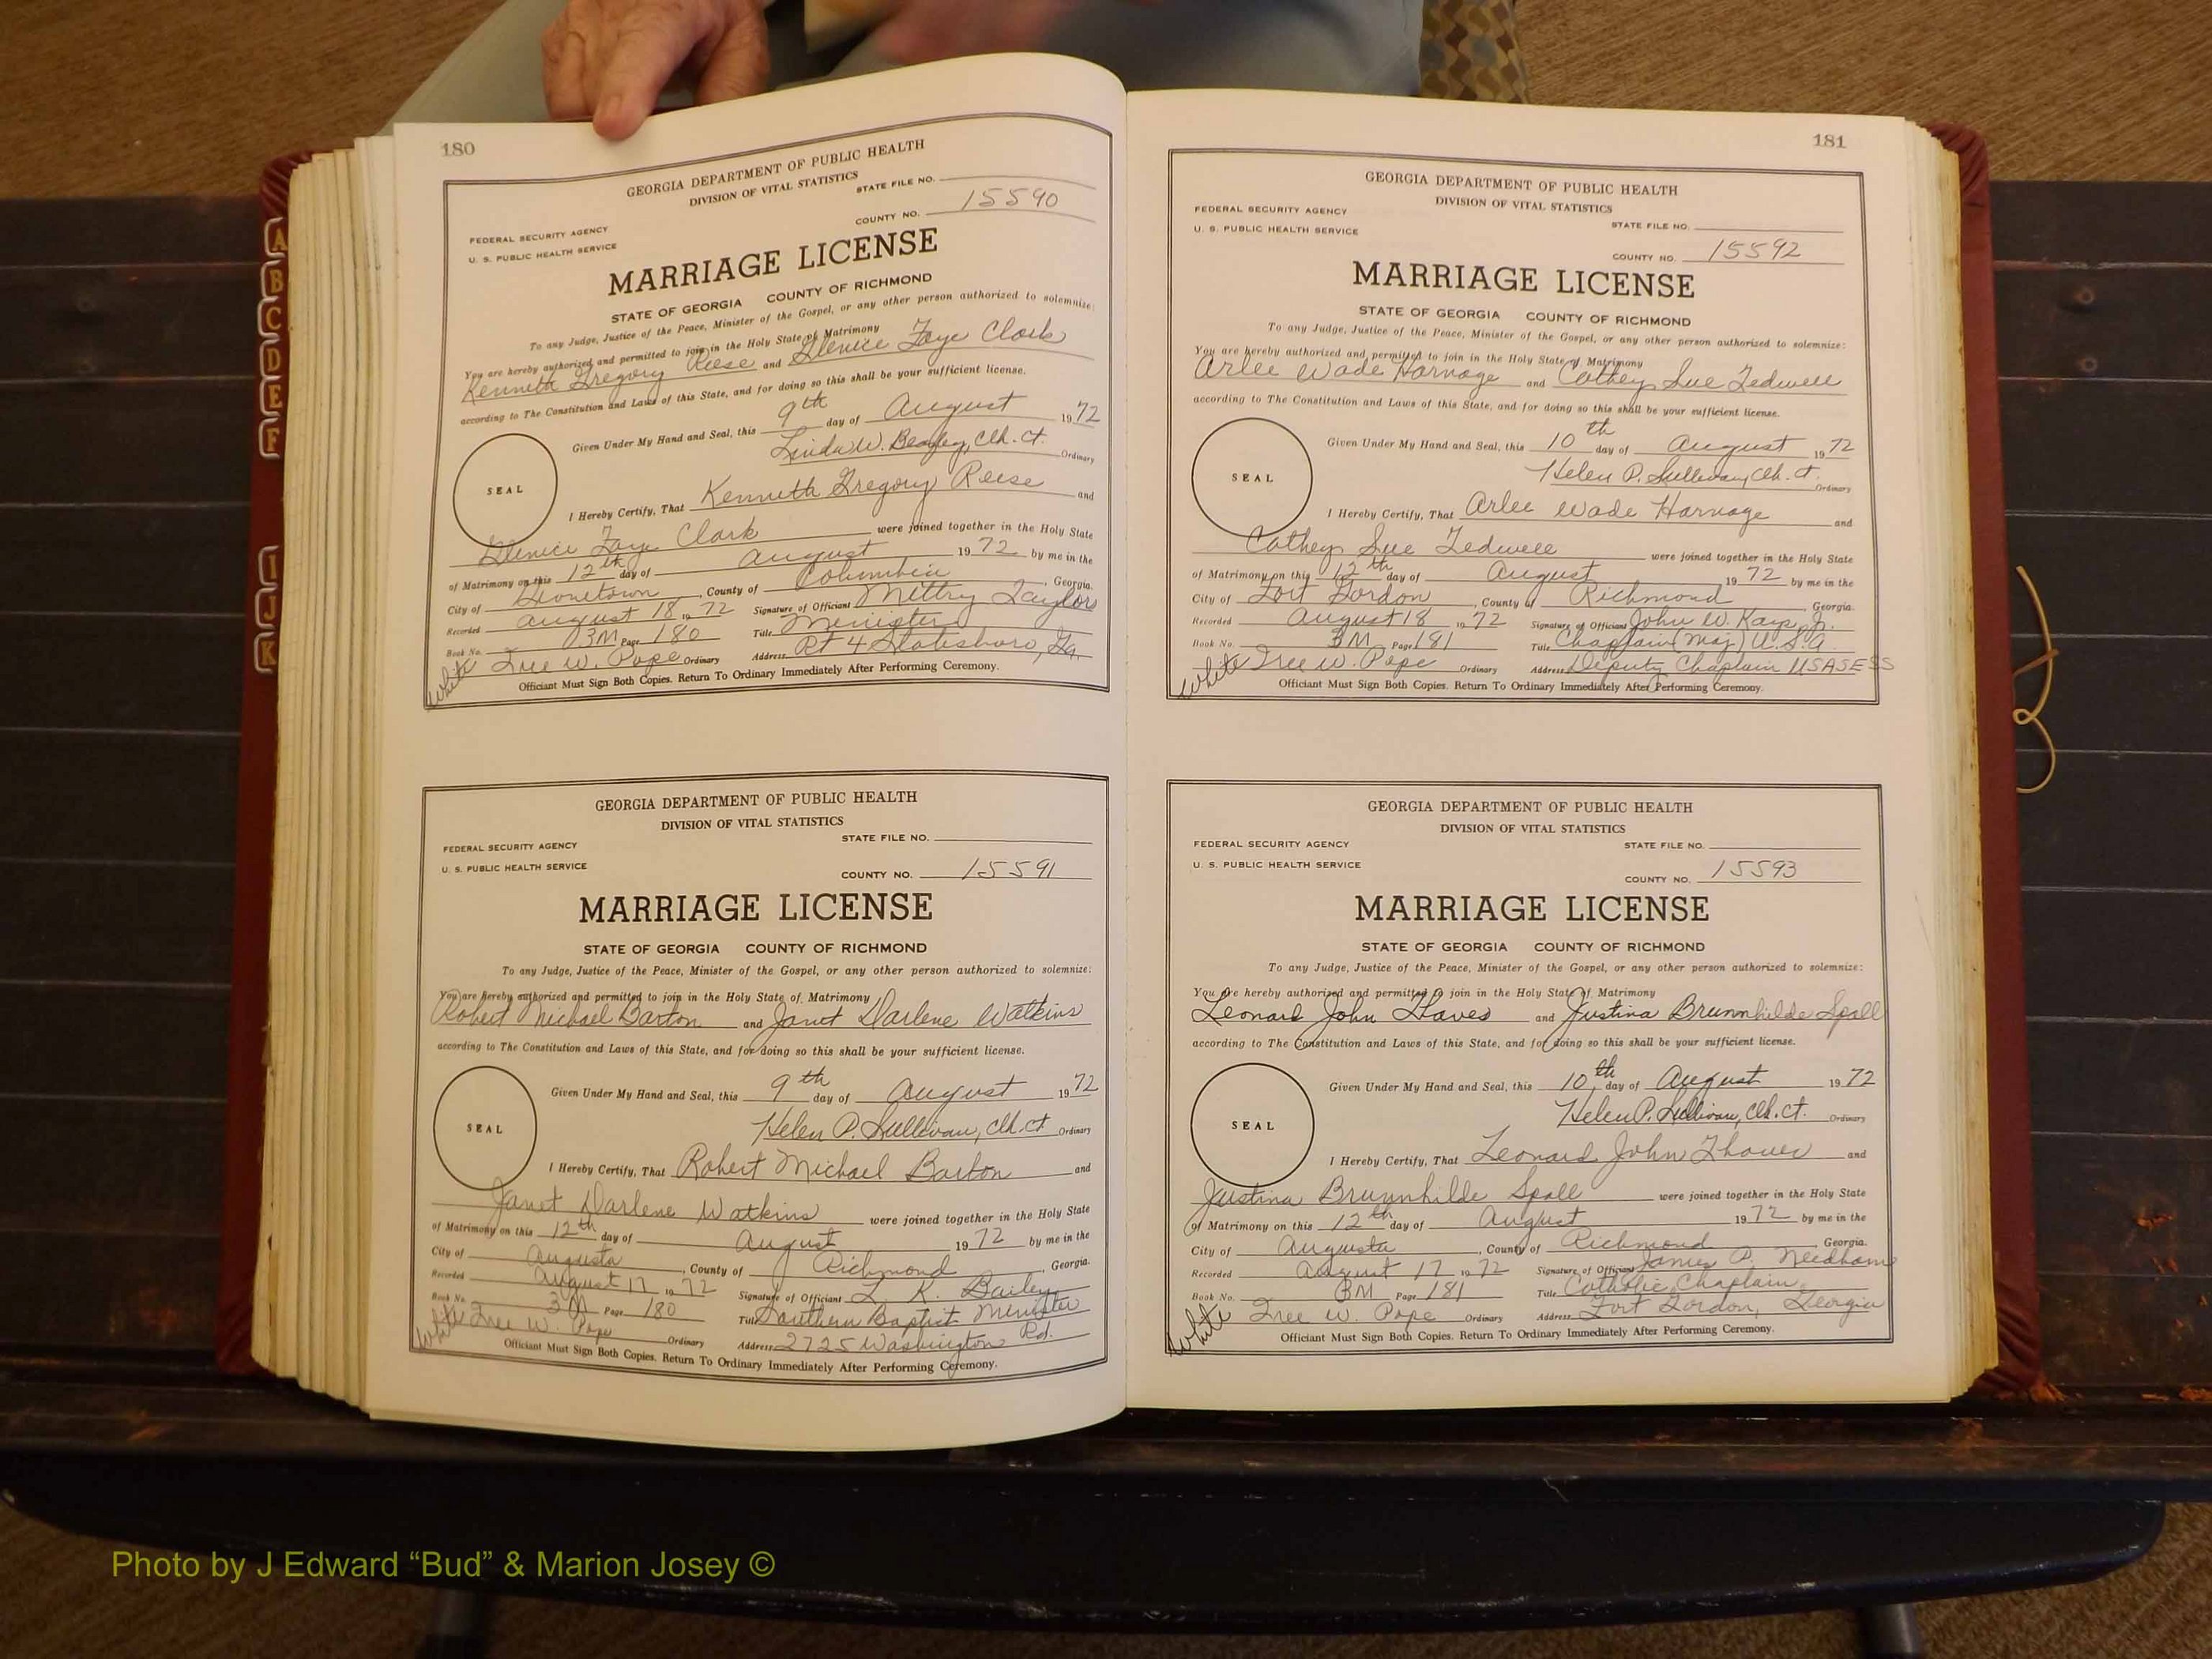 180
GEORGIA DEPARTMENT OF PUBLIC HEALTH
DIVISION OF VITAL STATISTICS
STATE FILE NO.
COUNTY NO. 15590
FEDERAL SECURITY AGENCY
U. S. PUBLIC HEALTH SERVICE
MARRIAGE LICENSE
STATE OF GEORGIA COUNTY OF RICHMOND
To any Judge, Justice of the Peace, Minister of the Gospel, or any other person authorized to solemnize:
You are hereby authorized and permitted to join in the Holy State of Matrimony
Kenneth Gregory Reese and Glenice Faye Clark
according to The Constitution and Laws of this State, and for doing so this shall be your sufficient license.
Given Under My Hand and Seal, this 9th day of August 1972
Linda W. Beazley, Clk. Ct. Ordinary
SEAL
I Hereby Certify, That Kenneth Gregory Reese and
Glenice Faye Clark were joined together in the Holy State
of Matrimony on this 12th day of August 1972 by me in the
City of , County of Columbia, Georgia.
Recorded August 18 1972 Signature of Officiant Taylor
Book No. 3M Page 180 Title Minister
White W. Pope Ordinary Address Rt 4 Statesboro, Ga.
Officiant Must Sign Both Copies. Return To Ordinary Immediately After Performing Ceremony.
GEORGIA DEPARTMENT OF PUBLIC HEALTH
DIVISION OF VITAL STATISTICS
STATE FILE NO.
FEDERAL SECURITY AGENCY
U. S. PUBLIC HEALTH SERVICE
COUNTY NO. 15591
MARRIAGE LICENSE
STATE OF GEORGIA COUNTY OF RICHMOND
To any Judge, Justice of the Peace, Minister of the Gospel, or any other person authorized to solemnize:
You are hereby authorized and permitted to join in the Holy State of Matrimony
Robert Michael Barton and Janet Darlene Watkins
according to The Constitution and Laws of this State, and for doing so this shall be your sufficient license.
Given Under My Hand and Seal, this 9th day of August 1972
Helen P. Sullivan, Clk. Ct Ordinary
SEAL
I Hereby Certify, That Robert Michael Barton and
Janet Darlene Watkins were joined together in the Holy State
of Matrimony on this 12th day of August 1972 by me in the
City of Augusta, County of Richmond, Georgia.
Recorded August 17 1972 Signature of Officiant L. K. Bailey
Book No. 3M Page 180 Title Southern Baptist Minister
White W. Pope Ordinary Address 2725 Washington Rd.
Officiant Must Sign Both Copies. Return To Ordinary Immediately After Performing Ceremony.
181
GEORGIA DEPARTMENT OF PUBLIC HEALTH
DIVISION OF VITAL STATISTICS
FEDERAL SECURITY AGENCY
U. S. PUBLIC HEALTH SERVICE
STATE FILE NO.
COUNTY NO. 15592
MARRIAGE LICENSE
STATE OF GEORGIA COUNTY OF RICHMOND
To any Judge, Justice of the Peace, Minister of the Gospel, or any other person authorized to solemnize:
You are hereby authorized and permitted to join in the Holy State of Matrimony
Arlee Wade Harnage and Cathey Sue Tedwell
according to The Constitution and Laws of this State, and for doing so this shall be your sufficient license.
Given Under My Hand and Seal, this 10th day of August 1972
Helen P. Sullivan, Clk. Ct. Ordinary
SEAL
I Hereby Certify, That Arlee Wade Harnage and
Cathey Sue Tedwell were joined together in the Holy State
of Matrimony on this 12th day of August 1972 by me in the
City of Fort Gordon, County of Richmond, Georgia.
Recorded August 18 1972 Signature of Officiant John W. Kays, Jr.
Book No. 3M Page 181 Title Chaplain (Maj) U.S.A.
White W. Pope Ordinary Address Deputy Chaplain USASESS
Officiant Must Sign Both Copies. Return To Ordinary Immediately After Performing Ceremony.
GEORGIA DEPARTMENT OF PUBLIC HEALTH
DIVISION OF VITAL STATISTICS
FEDERAL SECURITY AGENCY
U. S. PUBLIC HEALTH SERVICE
STATE FILE NO.
COUNTY NO. 15593
MARRIAGE LICENSE
STATE OF GEORGIA COUNTY OF RICHMOND
To any Judge, Justice of the Peace, Minister of the Gospel, or any other person authorized to solemnize:
You are hereby authorized and permitted to join in the Holy State of Matrimony
Leonard John and Justina Brunnhilde Spall
according to The Constitution and Laws of this State, and for doing so this shall be your sufficient license.
Given Under My Hand and Seal, this 10th day of August 1972
Helen P. Sullivan, Clk. Ct. Ordinary
SEAL
I Hereby Certify, That Leonard John and
Justina Brunnhilde Spall were joined together in the Holy State
of Matrimony on this 12th day of August 1972 by me in the
City of Augusta, County of Richmond Georgia.
Recorded August 17 1972 Signature of Officiant James P. Needham
Book No. 3M Page 181 Title Catholic Chaplain
White W. Pope Ordinary Address Fort Gordon, Georgia
Officiant Must Sign Both Copies. Return To Ordinary Immediately After Performing Ceremony.
A
B
C
D
E
F
I
J
K
Photo by J Edward “Bud” & Marion Josey ©